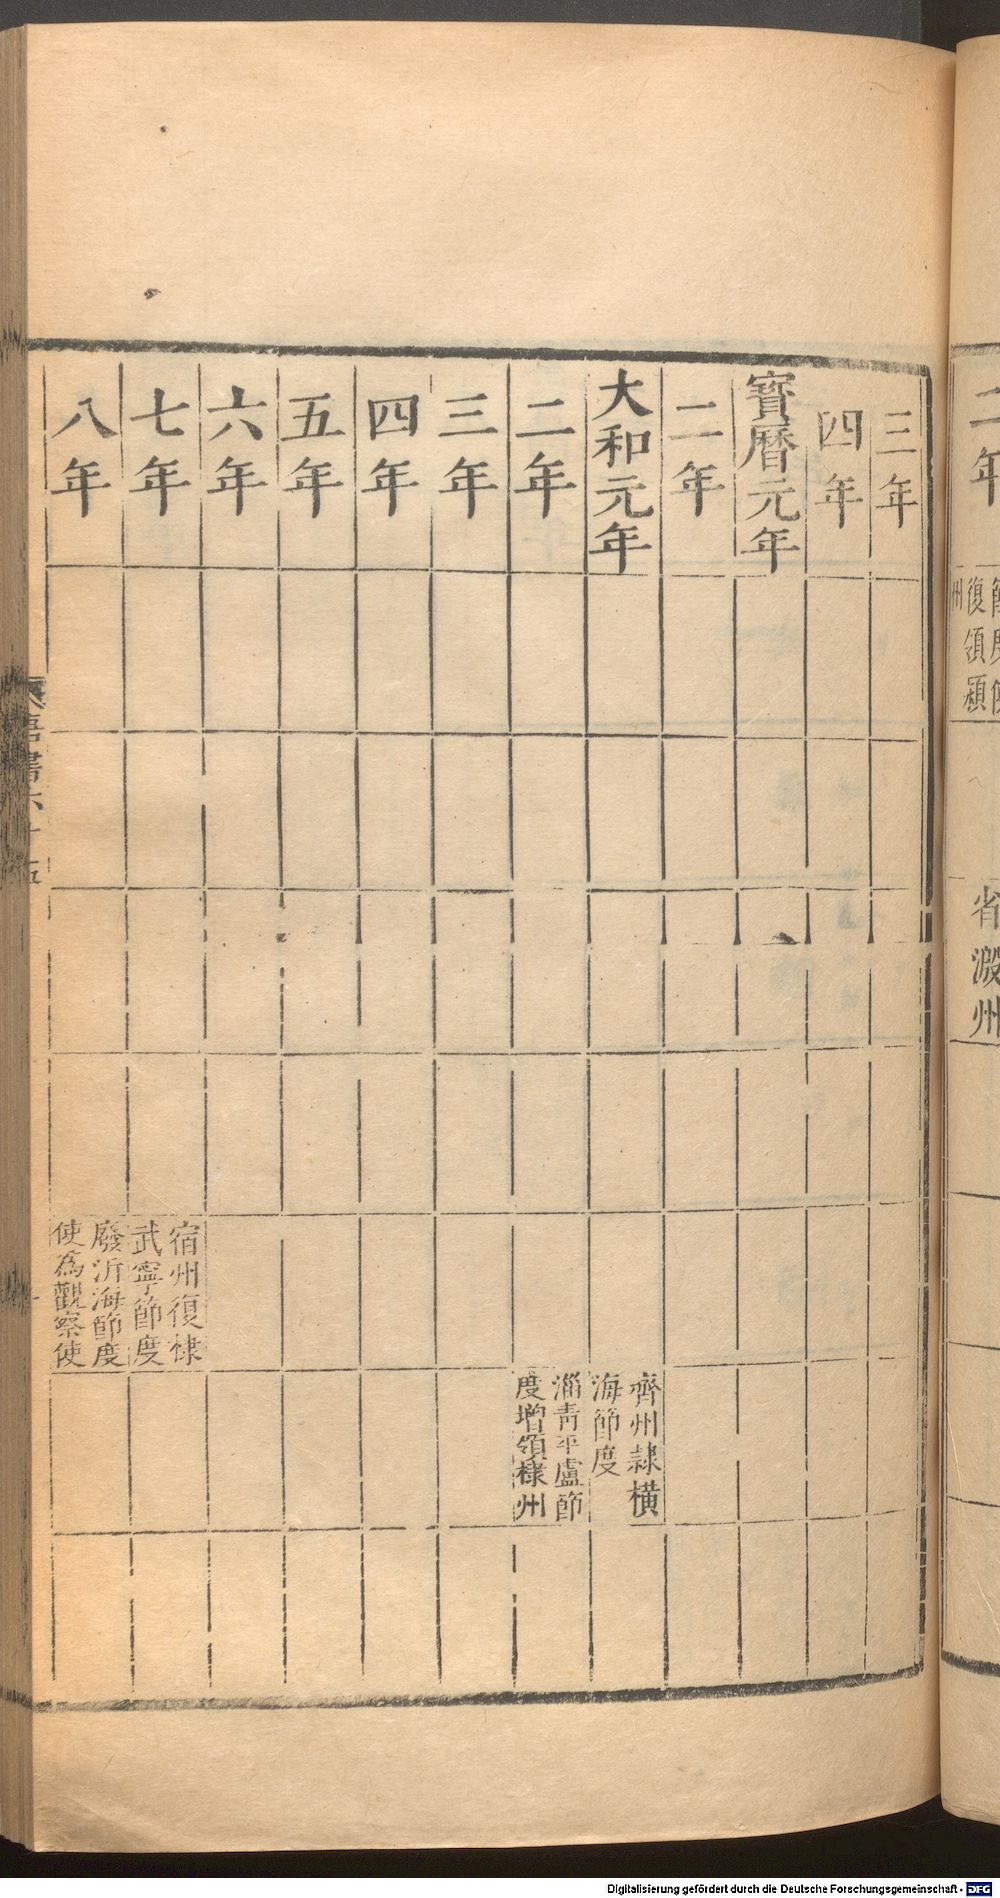 二年
節度使
復領潁
州
省溵州
三年
四年
寶曆元年
二年
大和元年
齊州隷橫
海節度
二年
淄青平盧節
度增領棣州
三年
四年
五年
六年
七年
宿州復棣
武寧節度
八年
廢沂海節度
使為觀察使
唐書六十五
Digitalisierung gefördert durch die Deutsche Forschungsgemeinschaft - DFG